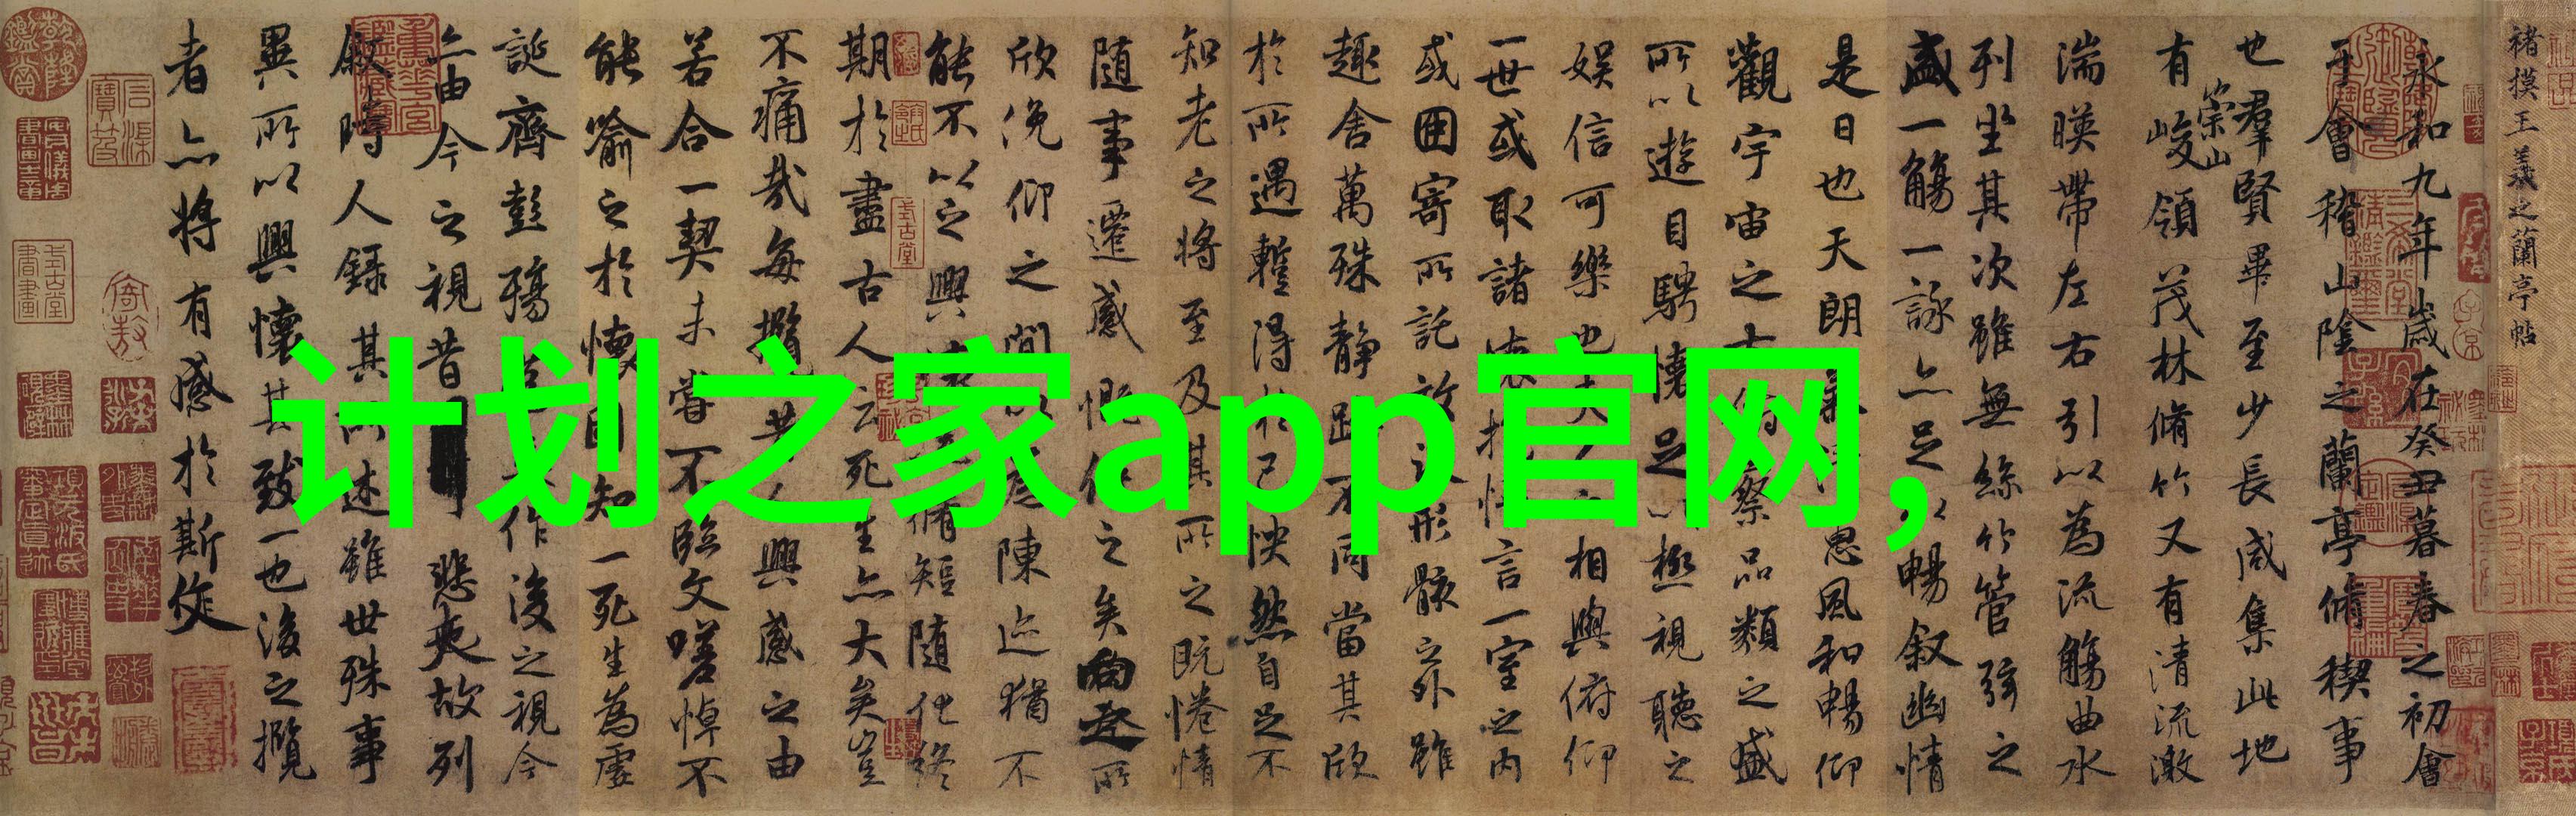 褚摸王羲之蘭亭帖
永和九年歲在癸丑暮春之初會
于會稽山陰之蘭亭脩稧事
也羣賢畢至少長咸集此地
有崇山峻領茂林脩竹又有清流激
湍暎帶左右引以為流觴曲水
列坐其次雖無絲竹管弦之
盛一觴一詠亦足以暢叙幽情
是日也天朗風和暢仰
觀宇宙之大俯察品類之盛
所以遊目騁懷足以極視聽之
娛信可樂也夫人之相與俯仰
一世或取諸懷抱悟言一室之內
或因寄所託放浪形骸之外雖
趣舍萬殊静躁不同當其欣
於所遇暫得於己怏然自足不
知老之將至及其所之既惓情
隨事遷感慨係之矣向之所
欣俛仰之間以為陳迹猶不
能不以之興脩短隨化終
期於盡古人云死生亦大矣豈
不痛哉每攬昔人興感之由
若合一契未嘗不臨文嗟悼不
能喻之於懷固知一死生為虛
誕齊彭殤作後之視今
亦由今之視昔悲夫故列
叙時人錄其所述雖世殊事
異所以興懷其致一也後之攬
者亦將有感於斯文
计划之家app官网,